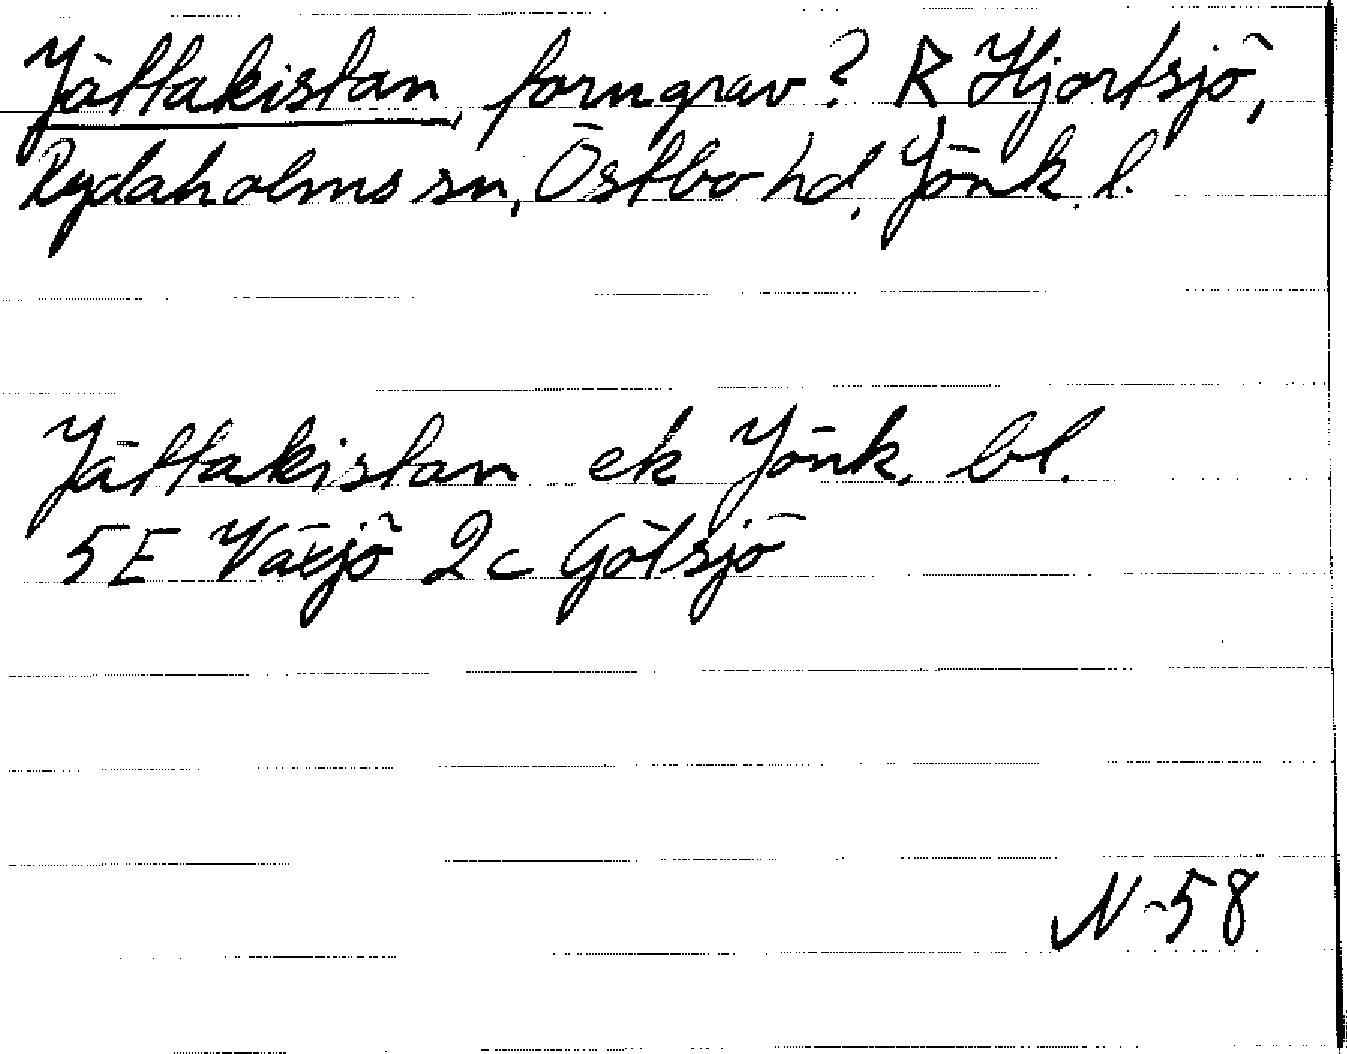 Jättakistan, forngrav? R Hjortsjö,
Rydaholms sn, Östbo hd, Jönk. l.
Jättakistan ek Jönk. bl.
5E Växjö 2c Götsjö
N -58